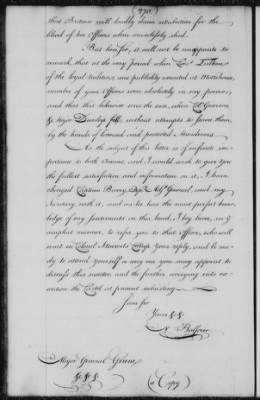 that Britain will loudly claim retribution for the
blood of her Officers when unwillfully shed.
But here for, it will not be inopposite to
remark, that at the very period when Col. Tillou
of the loyal militia are publickly executed at Hutchinson,
number of your Officers were absolutely in my power,
and that this violence was the case, when Col. Grierson
& Major Dunlop fell, without attempts to save them,
by the hands of licensed and protected Murderers.
As the subject of this letter is of infinite im-
portance to both Armies, and I would wish to give you
the fullest satisfaction and information on it, I have
charged Captain Barry, Dep. Adj. General, and my
Secretary with it, and as he has the most perfect know-
ledge of my sentiments on this head, I beg leave, in y
amplest manner, to refer you to that Officer, who will
wait in Colonel Stewarts camp your reply, and be rea-
dy to attend yourself or any one you may appoint to
discuss this matter and the further carrying into ex-
ecution the Cartel at present subsisting.
I am &c
N. Balfour
Major General Greene
&. &. &.
(a Copy)